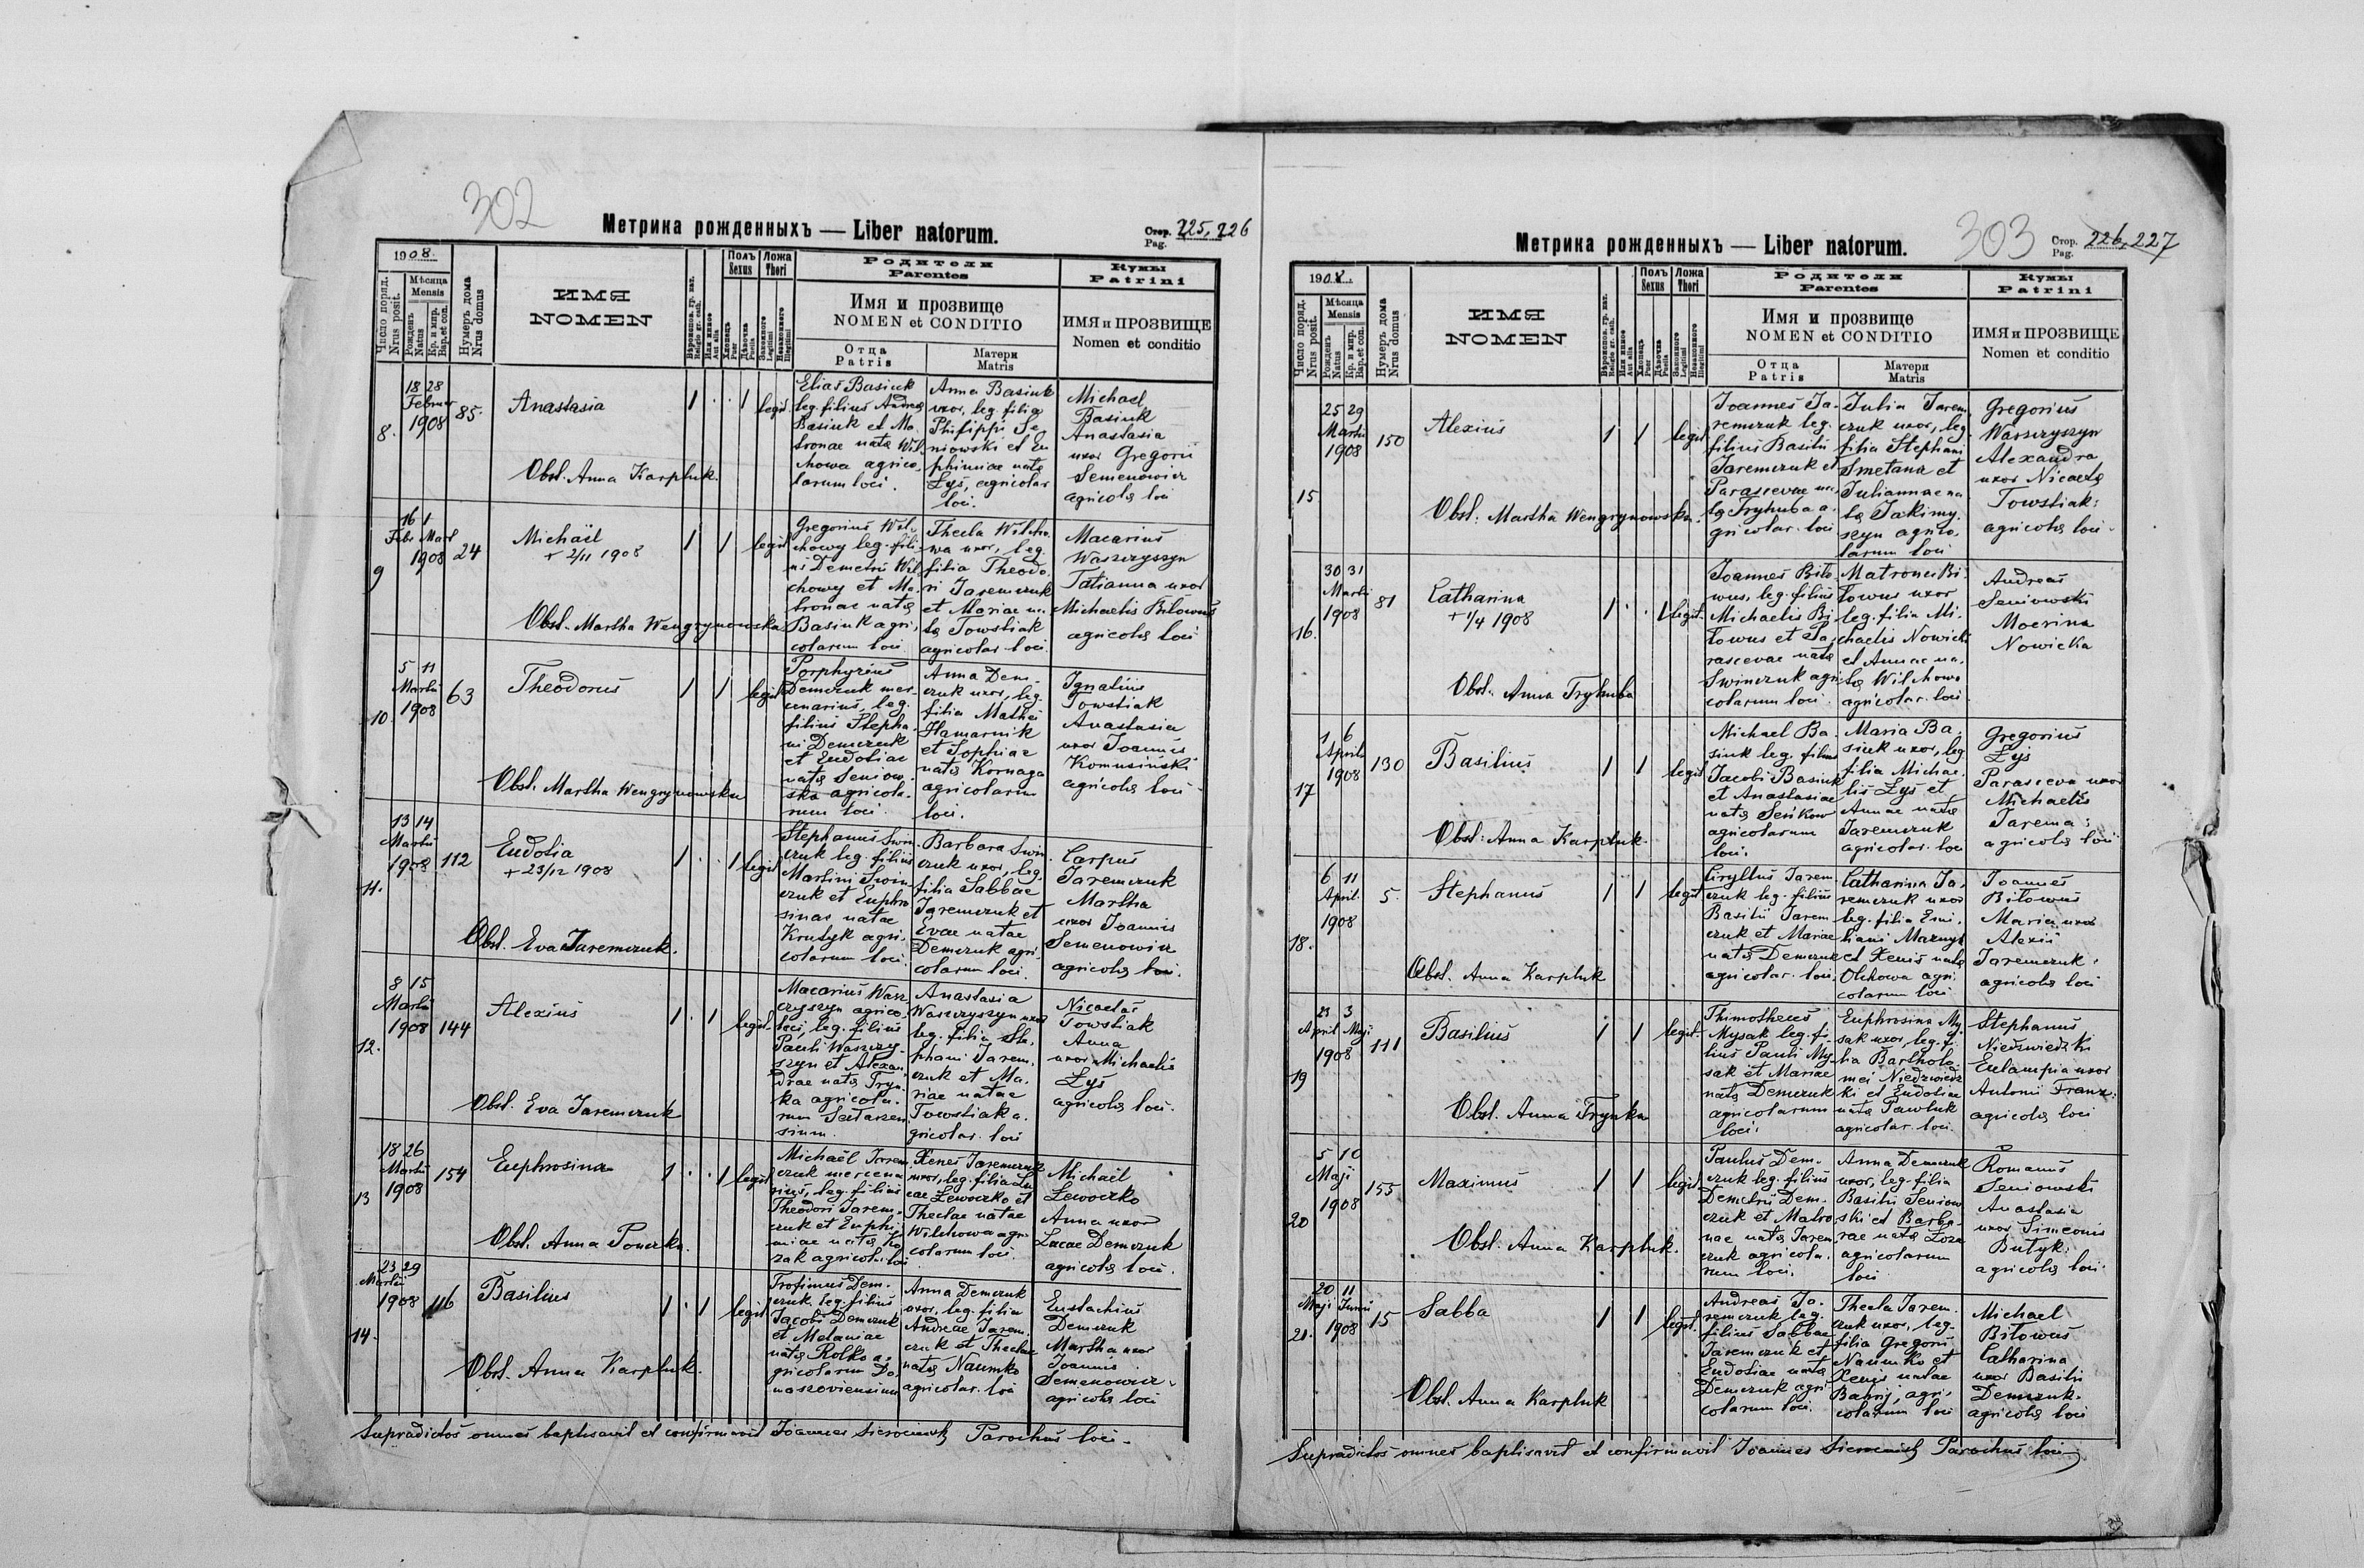 302
Метрика рожденныхъ — Liber natorum.
Стор. Pag. 225, 226
1908.
Число поряд.
Nrus posit.
Мѣсяца
Mensis
Рожденъ
Natus
Кр. и мир.
Bap. et con.
Нумеръ дома
Nrus domus
ИМЯ
NOMEN
Вѣроиспов. гр. кат.
Religio gr. cath.
Или иное
Aut alia
Полъ
Sexus
Хлопецъ
Puer
Дѣвочка
Puella
Ложа
Thori
Законного
Legitimi
Незаконного
Illegitimi
Родители
Parentes
Имя и прозвище
NOMEN et CONDITIO
Отца
Patris
Матери
Matris
Кумы
Patrini
ИМЯ и ПРОЗВИЩЕ
Nomen et conditio
8.
18 28
Februar
1908
85.
Anastasia
Obst. Anna Karpluk.
1 . . 1 legit.
Elias Basiuk
leg. filius Andreae
Basiuk et Ma-
tronae natae Wil-
chowa agrico-
larum loci.
Anna Basiuk
uxor, leg. filia
Philippi Se-
niowski et Eu-
phimiae natae
Zyś, agricolar
loci.
Michael
Basiuk
Anastasia
uxor Gregorii
Semenowicz
agricolae loci
9
16 1
Febr. Mart
1908
24
Michaël
+ 2/11 1908
Obst. Martha Wengrynowska
1 1 legit
Gregorius Wil-
chowy leg. fili-
us Demetrii Wil
chowy et Ma-
tronae natae
Basiuk agri-
colarum loci.
Thecla Wilcho-
wa uxor, leg.
filia Theodo-
ri Jaremczuk
et Mariae na-
tae Towstiak
agricolar. loci.
Macarius
Waszczyszyn
Tatianna uxor
Michaelis Bilowus
agricolae loci
10.
5 11
Martii
1908
63
Theodorus
Obst. Martha Wengrynowska
1 1 legit
Porphyrius
Demczuk mer-
cenarius, leg.
filius Stepha-
ni Demczuk
et Eudoliae
natae Seniow-
ska agricola-
rum loci.
Anna Dem-
czuk uxor, leg.
filia Mathei
Hamarnik
et Sophiae
natae Kornaga
agricolarum
loci.
Ignatius
Towstiak
Anastasia
uxor Joannis
Komusiński
agricolae loci
11.
13 14
Martii
1908
112
Eudolia
+ 23/12 1908
Obst. Eva Jaremczuk.
1 . . 1 legit
Stephanus Swin-
czuk leg. filius
Martini Swin-
czuk et Euphro
sinae natae
Krutyk agri-
colarum loci.
Barbara Swin-
czuk uxor, leg.
filia Sabbae
Jaremczuk et
Evae natae
Demczuk agri-
colarum loci.
Carpus
Jaremczuk
Martha
uxor Joannis
Semenowicz
agricolae loci.
12.
8 15
Martii
1908
144
Alexius
Obst. Eva Jaremczuk
1 . 1 legit.
Macarius Wasz
czyszyn agrico.
loci, leg. filius
Pauli Waszczy-
szyn et Alexan-
drae natae Tryn-
ka agricola-
rum
Anastasia
Waszczyszyn uxor
leg. filia Ste-
phani Jarem-
czuk et Ma-
riae natae
Towstiak a-
gricolar. loci
Nicaetas
Towstiak
Anna
uxor Michaelis
Zyś
agricolae loci.
13
18 26
Martii
1908
154
Euphrosina
Obst. Anna Ponczka.
1 . . 1 legit
Michaël Jarem
czuk mercena
rius, leg. filius
Theodori Jarem-
czuk et Euphi-
miae natae Ko
zak agricol. loci
Xenes Jaremczuk
uxor, leg. filia Lu
cae Lewoczko et
Theclae natae
Wilchowa agri-
colarum loci.
Michaël
Lewoczko
Anna uxor
Lucae Demczuk
agricolae loci.
14.
23 29
Martii
1908
116
Basilius
Obst. Anna Karpluk.
1 . 1 legit
Trofimus Dem-
czuk, leg. filius
Jacobi Demczuk
et Melaniae
natae Rolko a-
gricolarum Do-
maszoviensium
Anna Demczuk
uxor, leg. filia
Andreae Jarem-
czuk et Theclae
natae Naumko
agricolar. loci
Eustachius
Demczuk
Martha uxor
Joannis
Semenowicz
agricolae loci
Supradictos omnes baptisavit et confirmavit Joannes Parochus loci.
303
Метрика рожденныхъ — Liber natorum.
Стор. Pag. 226, 227
1908.
Число поряд.
Nrus posit.
Мѣсяца
Mensis
Рожденъ
Natus
Кр. и мир.
Bap. et con.
Нумеръ дома
Nrus domus
ИМЯ
NOMEN
Вѣроиспов. гр. кат.
Religio gr. cath.
Или иное
Aut alia
Полъ
Sexus
Хлопецъ
Puer
Дѣвочка
Puella
Ложа
Thori
Законного
Legitimi
Незаконного
Illegitimi
Родители
Parentes
Имя и прозвище
NOMEN et CONDITIO
Отца
Patris
Матери
Matris
Кумы
Patrini
ИМЯ и ПРОЗВИЩЕ
Nomen et conditio
15
25 29
Martii
1908
150
Alexius
Obst: Martha Wengrynowska.
1 1 legit
Joannes Ja-
remczuk leg.
filius Basilii
Jaremczuk et
Parascevae na-
tae Tryhuba a-
gricolar. loci
Julia Jarem
czuk uxor, leg.
filia Stephani
Smetana et
Juliannae na
tae Jakimy-
szyn agrico-
larum loci
Gregorius
Waszczyszyn
Alexandra
uxor Nicaetae
Towstiak:
agricolae loci
16.
30 31
Martii
1908
81
Catharina
+ 1/4 1908
Obst. Anna Tryhuba
1 . . 1 legit.
Joannes Bilo-
wus, leg. filius
Michaelis Bi-
lowus et Pa-
rascevae natae
Swinczuk agri-
colarum loci.
Matrona Bi-
lowus uxor
leg. filia Mi-
chaelis Nowicki
et Annae na-
tae Wilchowa
agricolar. loci
Andreas
Seniowski
Mocrina
Nowicka
17
1 6
Aprilis
1908
130
Basilius
Obst: Anna Karpluk.
1 1 legit
Michael Ba-
siuk leg. filius
Jacobi Basiuk
et Anastasiae
natae Seńkow
agricolarum
loci.
Maria Ba-
siuk uxor, leg
filia Michae-
lis Zyś et
Annae natae
Jaremczuk
agricolar. loci
Gregorius
Zyś
Parasceva uxor
Michaelis
Jarema:
agricolae loci
18.
6 11
April.
1908
5.
Stephanus
Obst. Anna Karpluk
1 1 legit
Cyryllus Jarem-
czuk leg. filius
Basilii Jarem
czuk et Mariae
natae Demczuk
agricolar. loci.
Catharina Ja-
remczuk uxor
leg. filia Emi-
liani Mazuryk
et Xenis natae
Olchowa agri-
colarum loci
Joannes
Bilowus
Maria uxor
Alexii
Jaremczuk:
agricolae loci
19
23 3
April Maji
1908
111
Basilius
Obst. Anna Trynka
1 1 legit.
Thimotheus
Mysak leg. fi-
lius Pauli My-
sak et Mariae
natae Demczuk
agricolarum
loci.
Euphrosina My-
sak uxor, leg. fi-
lia Bartholo-
mei Niedzwiedz
ki et Eudoliae
natae Pawluk
agricolar. loci
Stephanus
Niedzwiedzki
Eulampia uxor
Antonii Franz:
agricolae loci
20
5 10
Maji
1908
155
Maximus
Obst. Anna Karpluk.
1 1 legit.
Paulus Dem-
czuk leg. filius
Demetrii Dem-
czuk et Matro-
nae natae Jarem
czuk agricola-
rum loci.
Anna Demczuk
uxor, leg. filia
Basilii Seniow
ski et Barba-
rae natae Łoza
agricolarum
loci
Romanus
Seniowski
Anastasia
uxor Simeonis
Butyk:
agricolae loci.
21.
20 11
Maji Junii
1908
15
Sabba
Obst. Anna Karpluk
1 1 legit.
Andreas Ja-
remczuk leg.
filius Sabbae
Jaremczuk et
Eudoliae natae
Demczuk agri
colarum loci.
Thecla Jarem-
czuk uxor, leg.
filia Gregorii
Naumko et
Xenis natae
Babij, agri-
colarum loci
Michael
Bilowus
Catharina
uxor Basilii
Demczuk.
agricolae loci
Supradictos omnes baptisavit et confirmavit Joannes Parochus loci